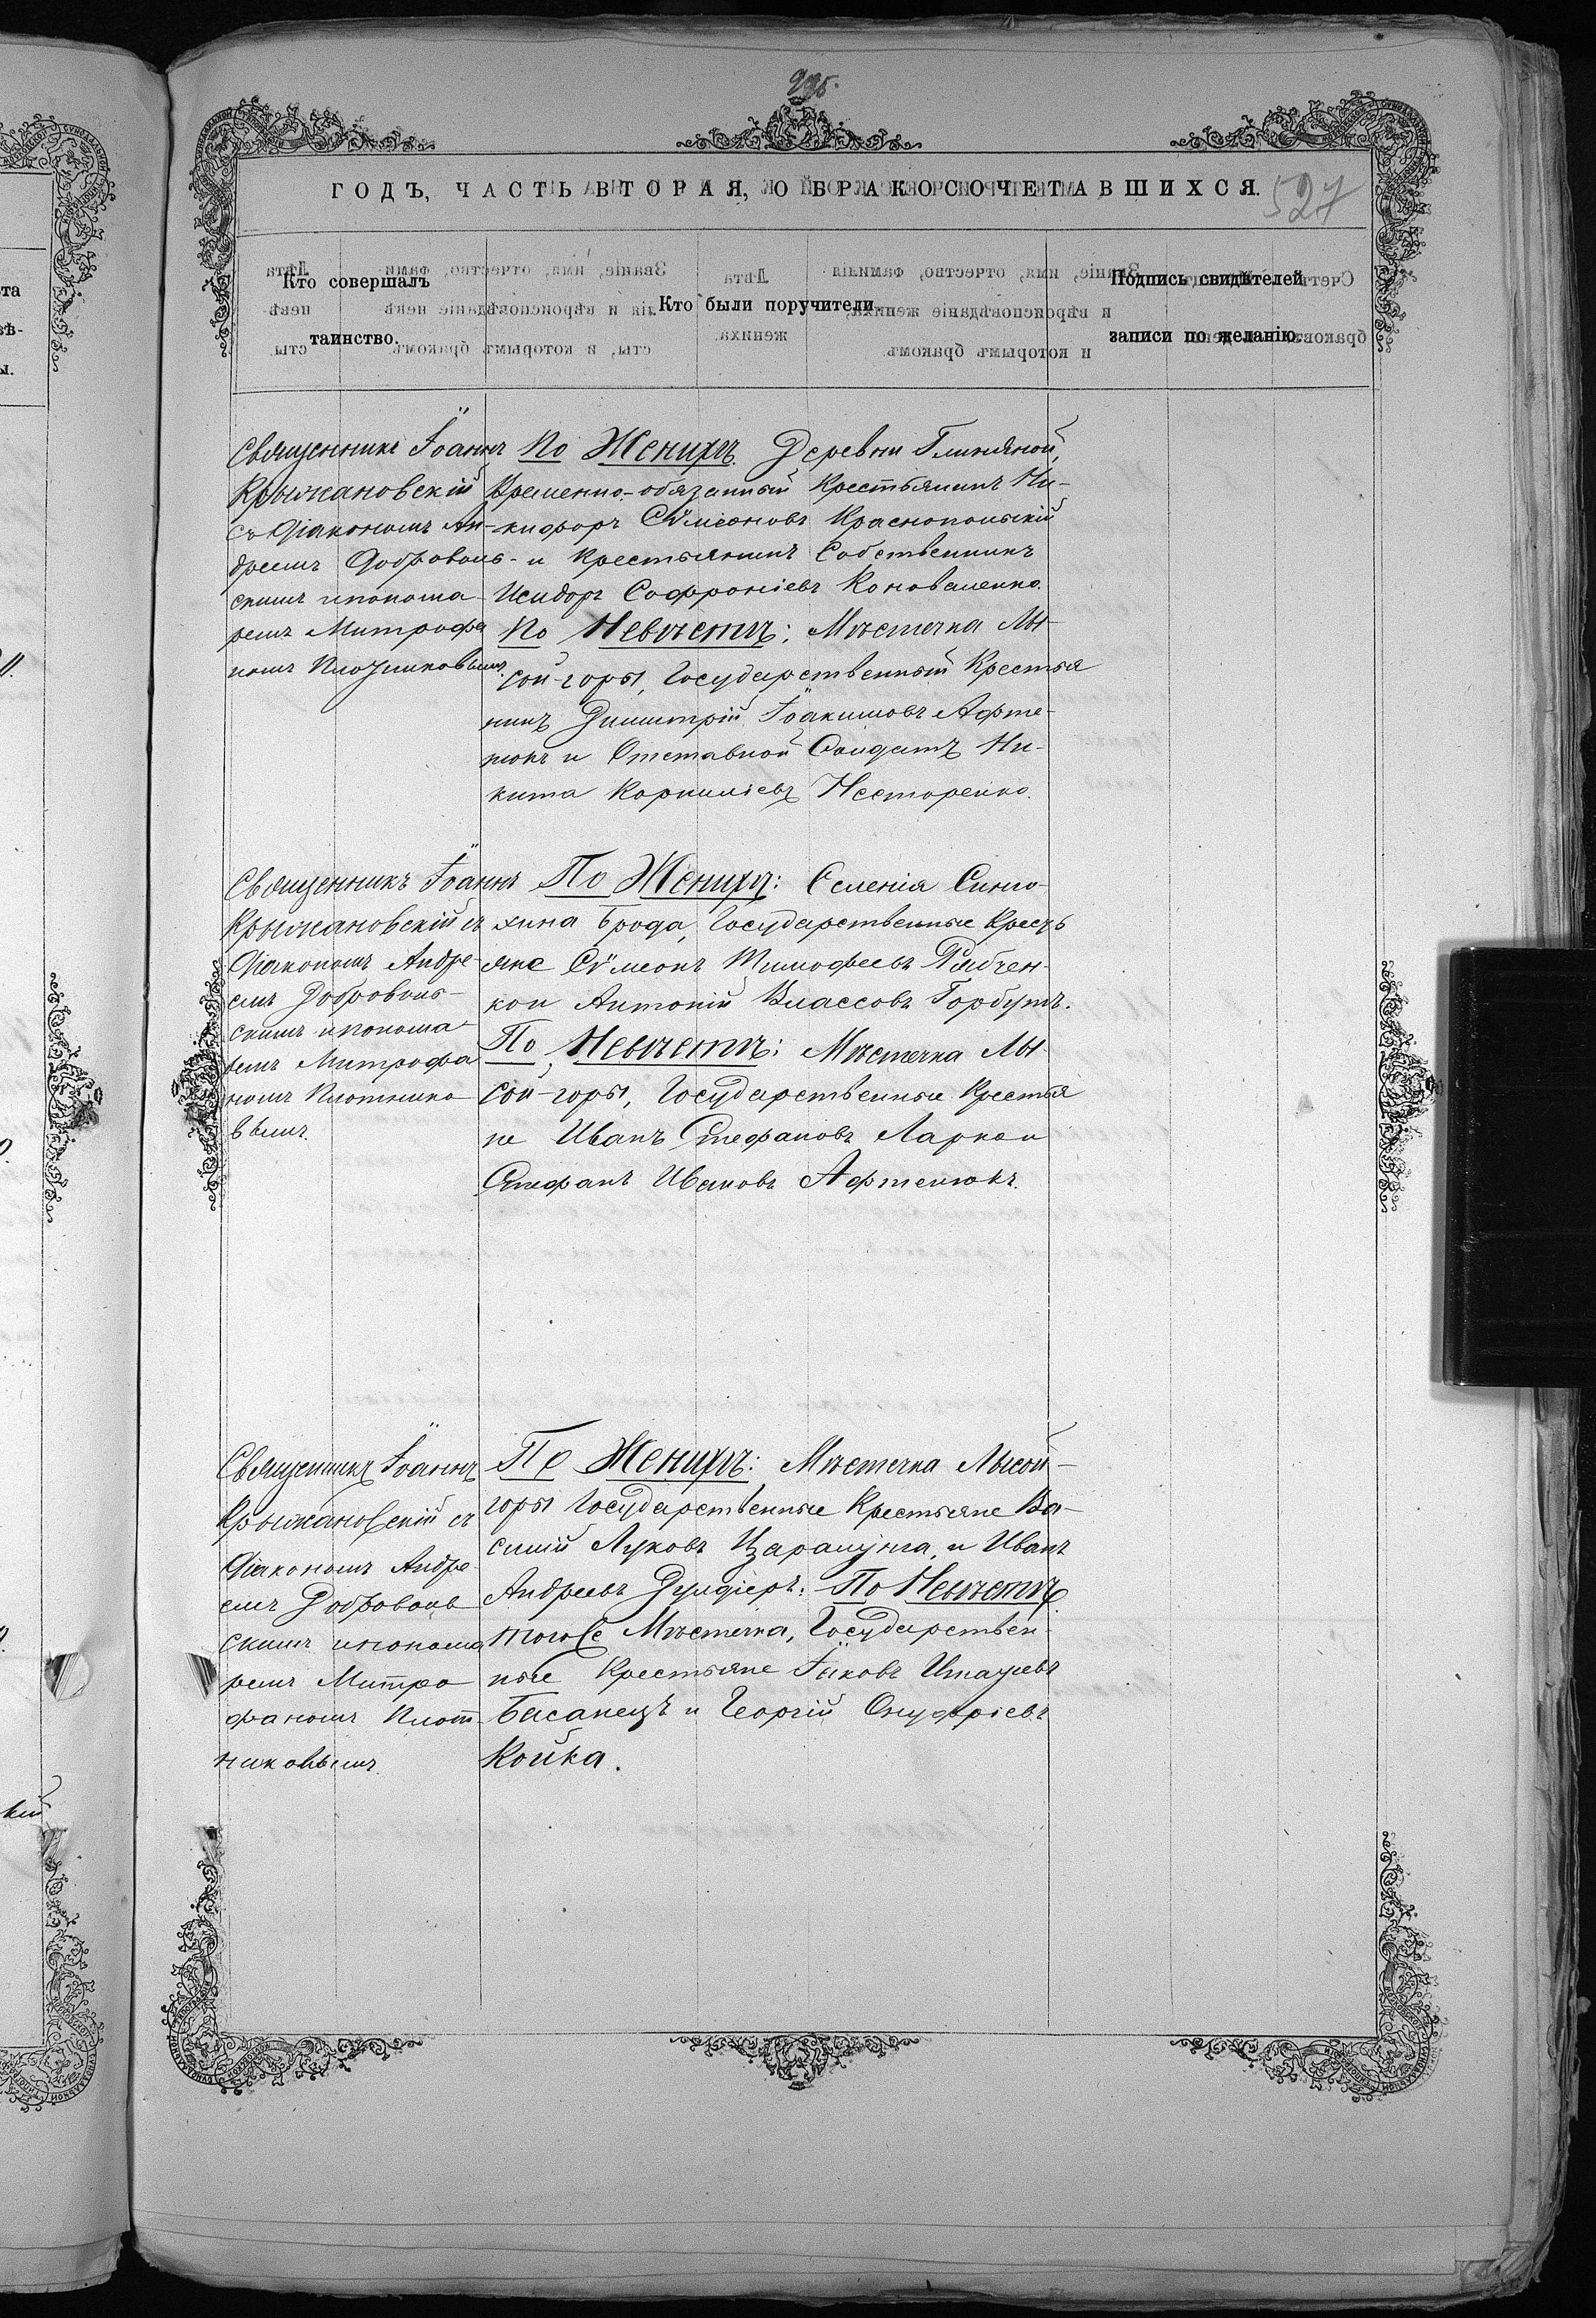 295.
ГОДЪ, ЧАСТЬ ВТОРАЯ, О БРАКОСОЧЕТАВШИХСЯ.
527
Кто совершалъ
таинство.
Кто были поручители.
Подпись свидѣтелей
записи по желанію.
Священникъ Іоаннъ
Крыжановскій
съ Діакономъ Ан-
дреемъ Доброволь-
скимъ и понома-
ремъ Митрофа
номъ Плотниковымъ.
По Женихѣ. Деревни Глиняной,
Временно-обязанный Крестьянинъ Ни-
кифоръ Сѵмеоновъ Краснопольскій
и Крестьянинъ Собственникъ
Исидоръ Софроніевъ Коноваленко.
По Невѣстѣ: Мѣстечка Лы-
сой-горы, Государственный Крестья
нинъ Димитрій Іоакимовъ Афте-
нюкъ и Отставной Солдатъ Ни-
кита Корниліевъ Несторенко.
Священникъ Іоаннъ
Крыжановскій съ
Діакономъ Андре-
емъ Доброволь-
скимъ и понома-
ремъ Митрофа
номъ Плотнико-
вымъ.
По Женихѣ: Селенія Синю-
хина Брода, Государственные Кресть
яне Сѵмеонъ Тимофеевъ Рябчен-
ко и Антоній Власовъ Горбутъ.
По Невѣстѣ: Мѣстечка Лы-
сой-горы, Государственные Крестья
не Иванъ Стефановъ Ларко и
Стефанъ Ивановъ Афтенюкъ.
Священникъ Іоаннъ
Крыжановскій съ
Діакономъ Андре-
емъ Доброволь
скимъ и понома
ремъ Митро
фаномъ Плот-
никовымъ.
По Женихѣ: Мѣстечка Лысой-
горы Государственные Крестьяне Ва-
силій Луковъ и Иванъ
Андреевъ По Невѣстѣ
тогоже Мѣстечка, Государствен-
ные Крестьяне Іаковъ
Басанецъ и Георгій Онуфріевъ
Койка.